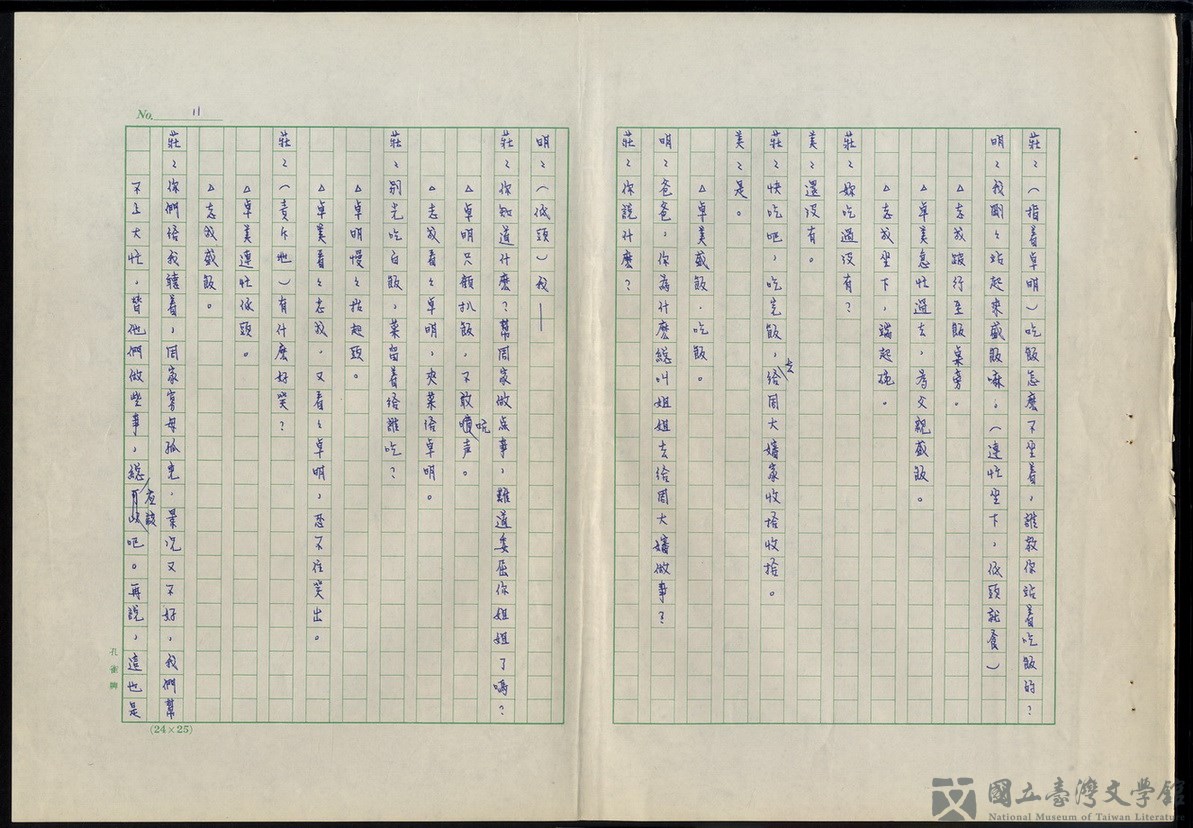 莊：（指着卓明）吃飯怎麽不坐着，誰教你站着吃飯的？
明：我剛剛站起來盛飯嘛。（連忙坐下，低頭就食）
△志成跛行至飯桌旁。
△卓美急忙過去，为父親盛飯。
△志成坐下，端起碗。
莊：妳吃過没有？
美：還没有。
莊：快吃吧，吃完飯，去給周大嬸家收拾收拾。
美：是。
△卓美盛飯．吃飯。
明：爸爸，你為什麽總叫姐姐去給周大嬸做事？
莊：你說什麽？
No. 11
明：（低頭）我——
莊：你知道什麽？幫周家做点事，難道委屈你姐姐了嗎？
△卓明只顧扒飯，不敢吭声。
△志成看看卓明，夾菜给卓明。
莊：别光吃白飯，菜留着给誰吃？
△卓明慢慢抬起頭。
△卓美看看志成．又看看卓明，忍不住笑出。
莊：（責斥地）有什麽好笑？
△卓美連忙低頭。
△志成盛飯。
莊：你們给我聽着，周家寡母孤兒．景况又不好，我們幫
不上大忙，替他們做些事，總應該吧。再說，這也是
孔雀牌
(24×25)
國立臺灣文學館
National Museum of Taiwan Literature